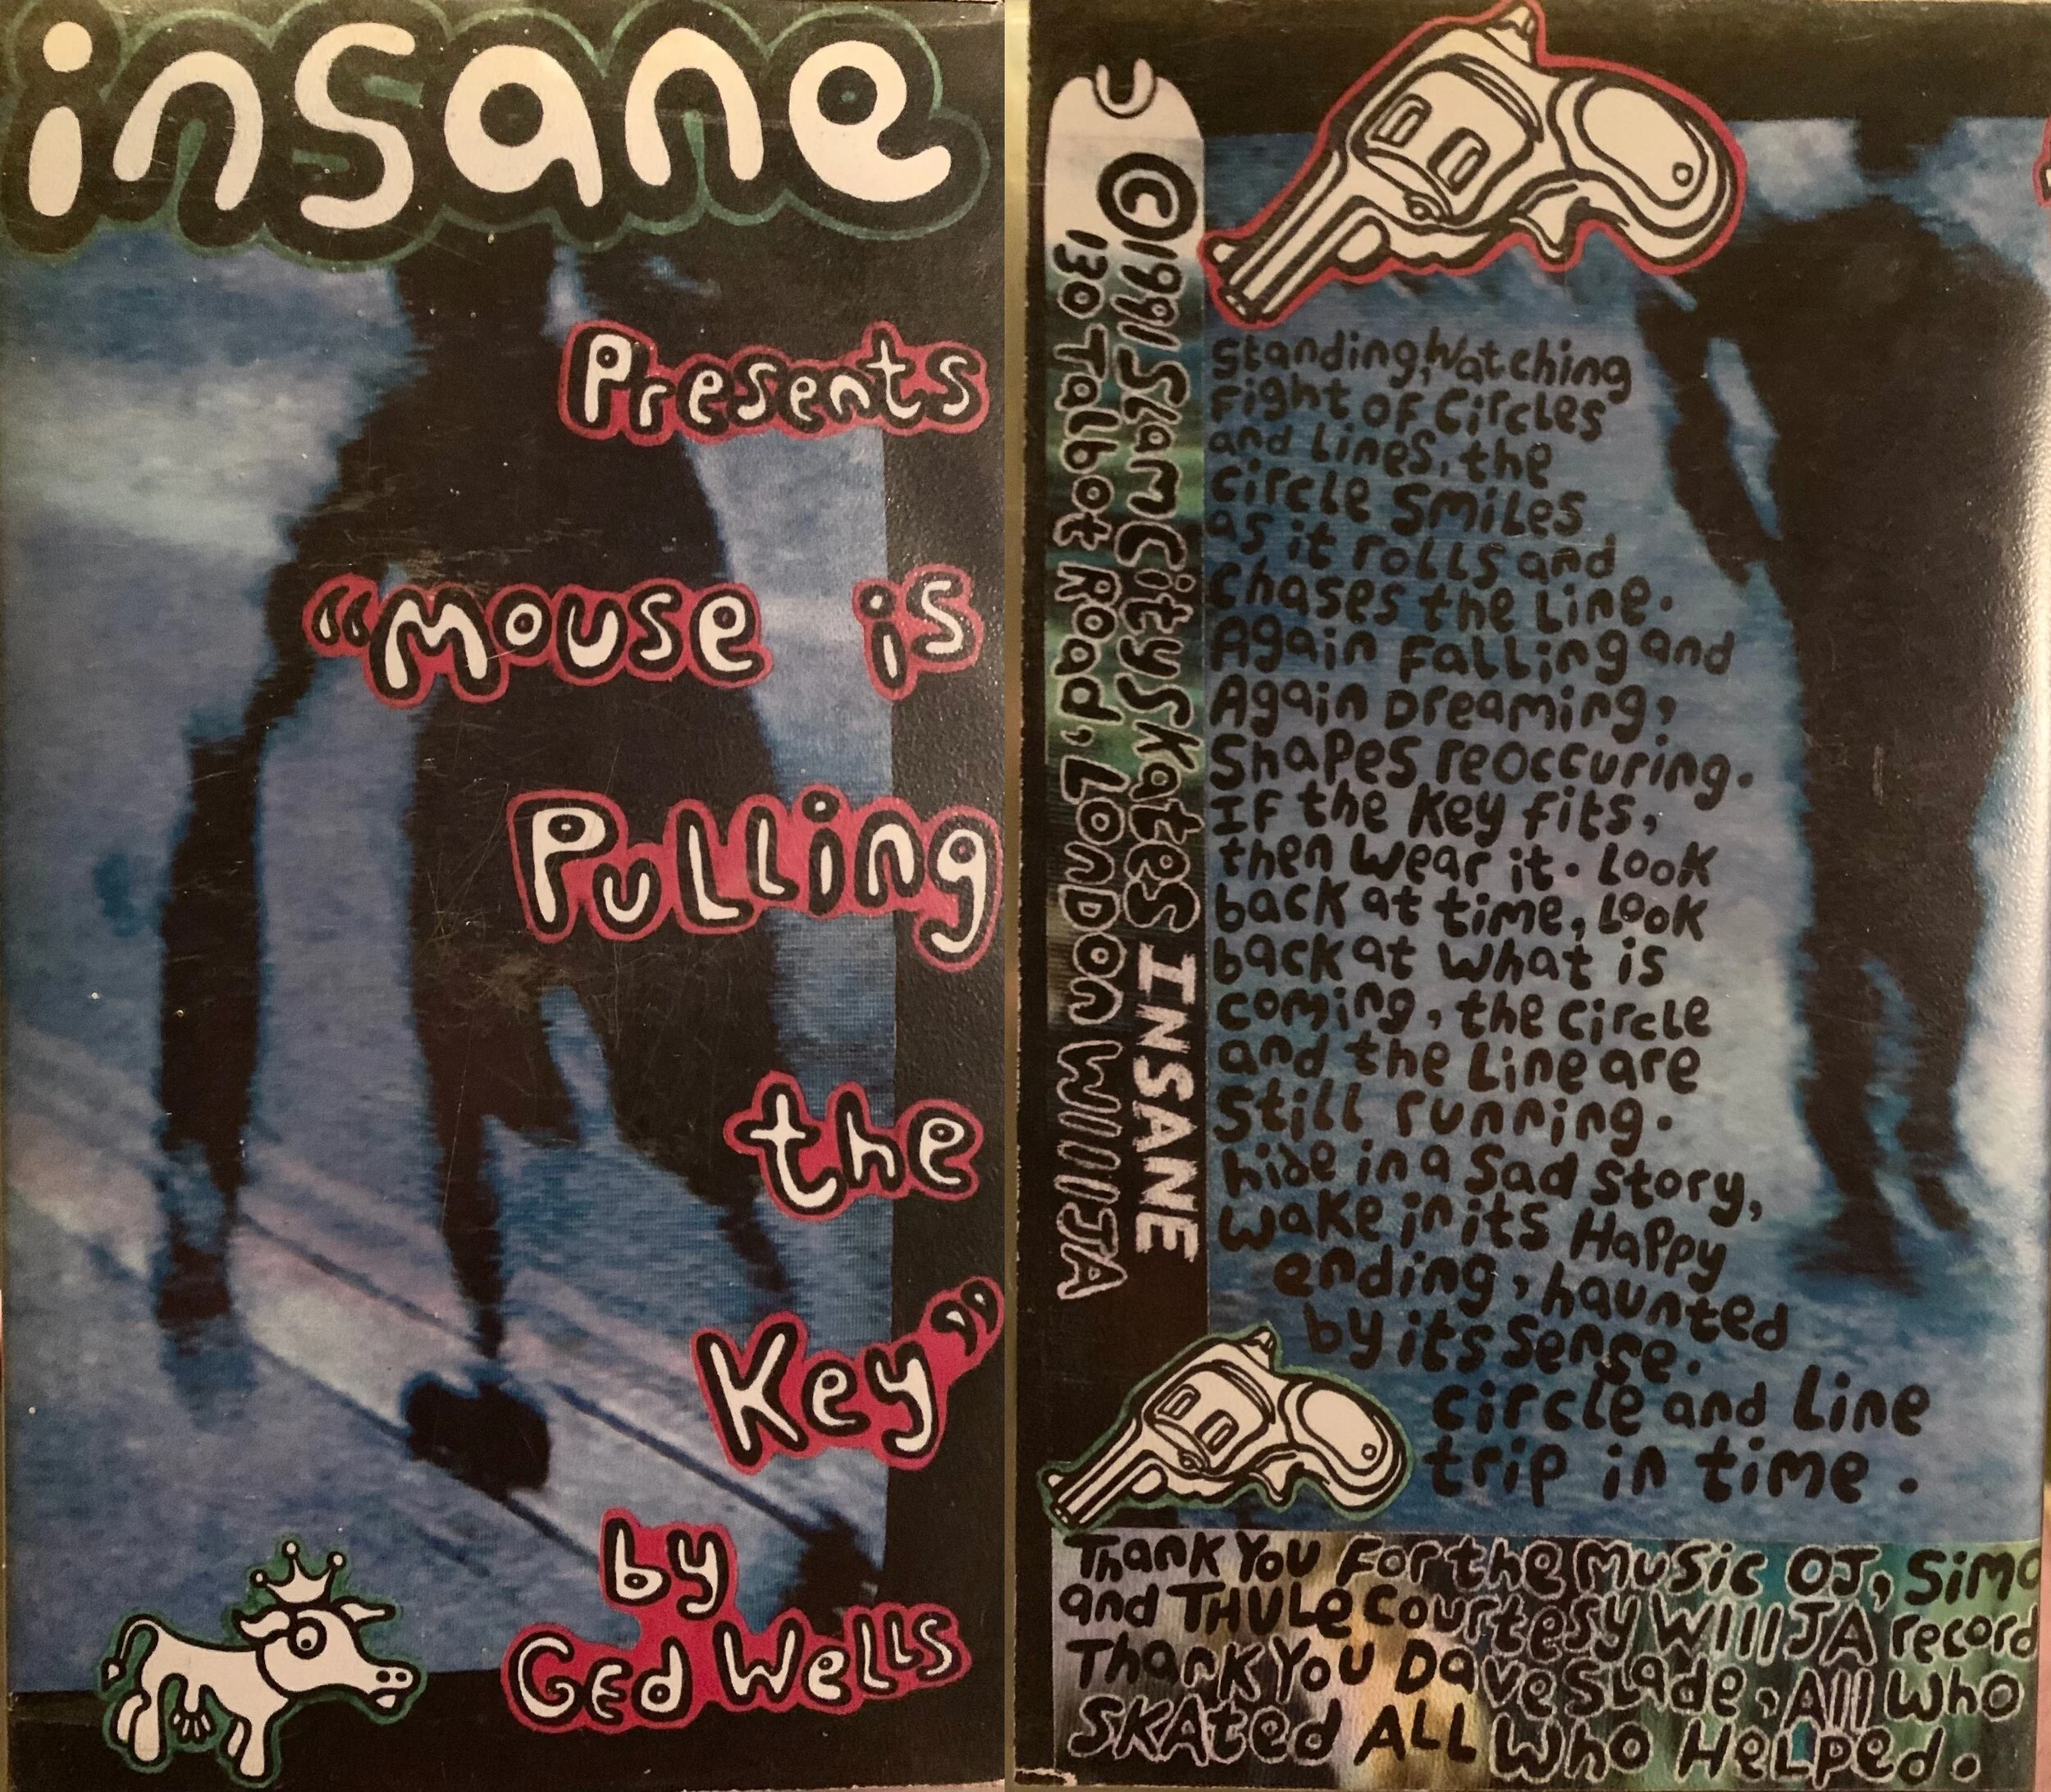 insane
Presents
"Mouse is
Pulling
the
Key"
by
Ged Wells
©1991 Slam City Skates INSANE
130 Talbot Road, London WIIIIJA
Standing, Watching
Fight of Circles
and Lines, the
circle Smiles
as it rolls and
chases the Line.
Again Falling and
Again Dreaming,
Shapes reoccuring.
If the Key fits,
then wear it. Look
back at time, Look
back at what is
coming, the circle
and the Line are
Still running.
hide in a Sad Story,
wake in its Happy
ending, haunted
by its sense.
circle and Line
trip in time.
Thank You For the Music OJ,
and THULe Courtesy WIIIJA record
Thank You Dave Slade, All Who
SKAted ALL Who HeLped.